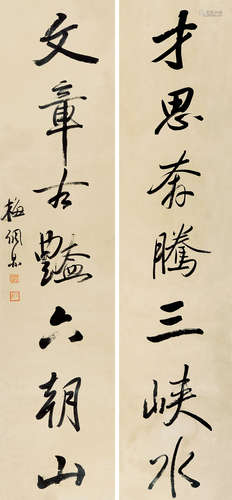 才思奔騰三峽水
文章古豔六朝山
梅調鼎